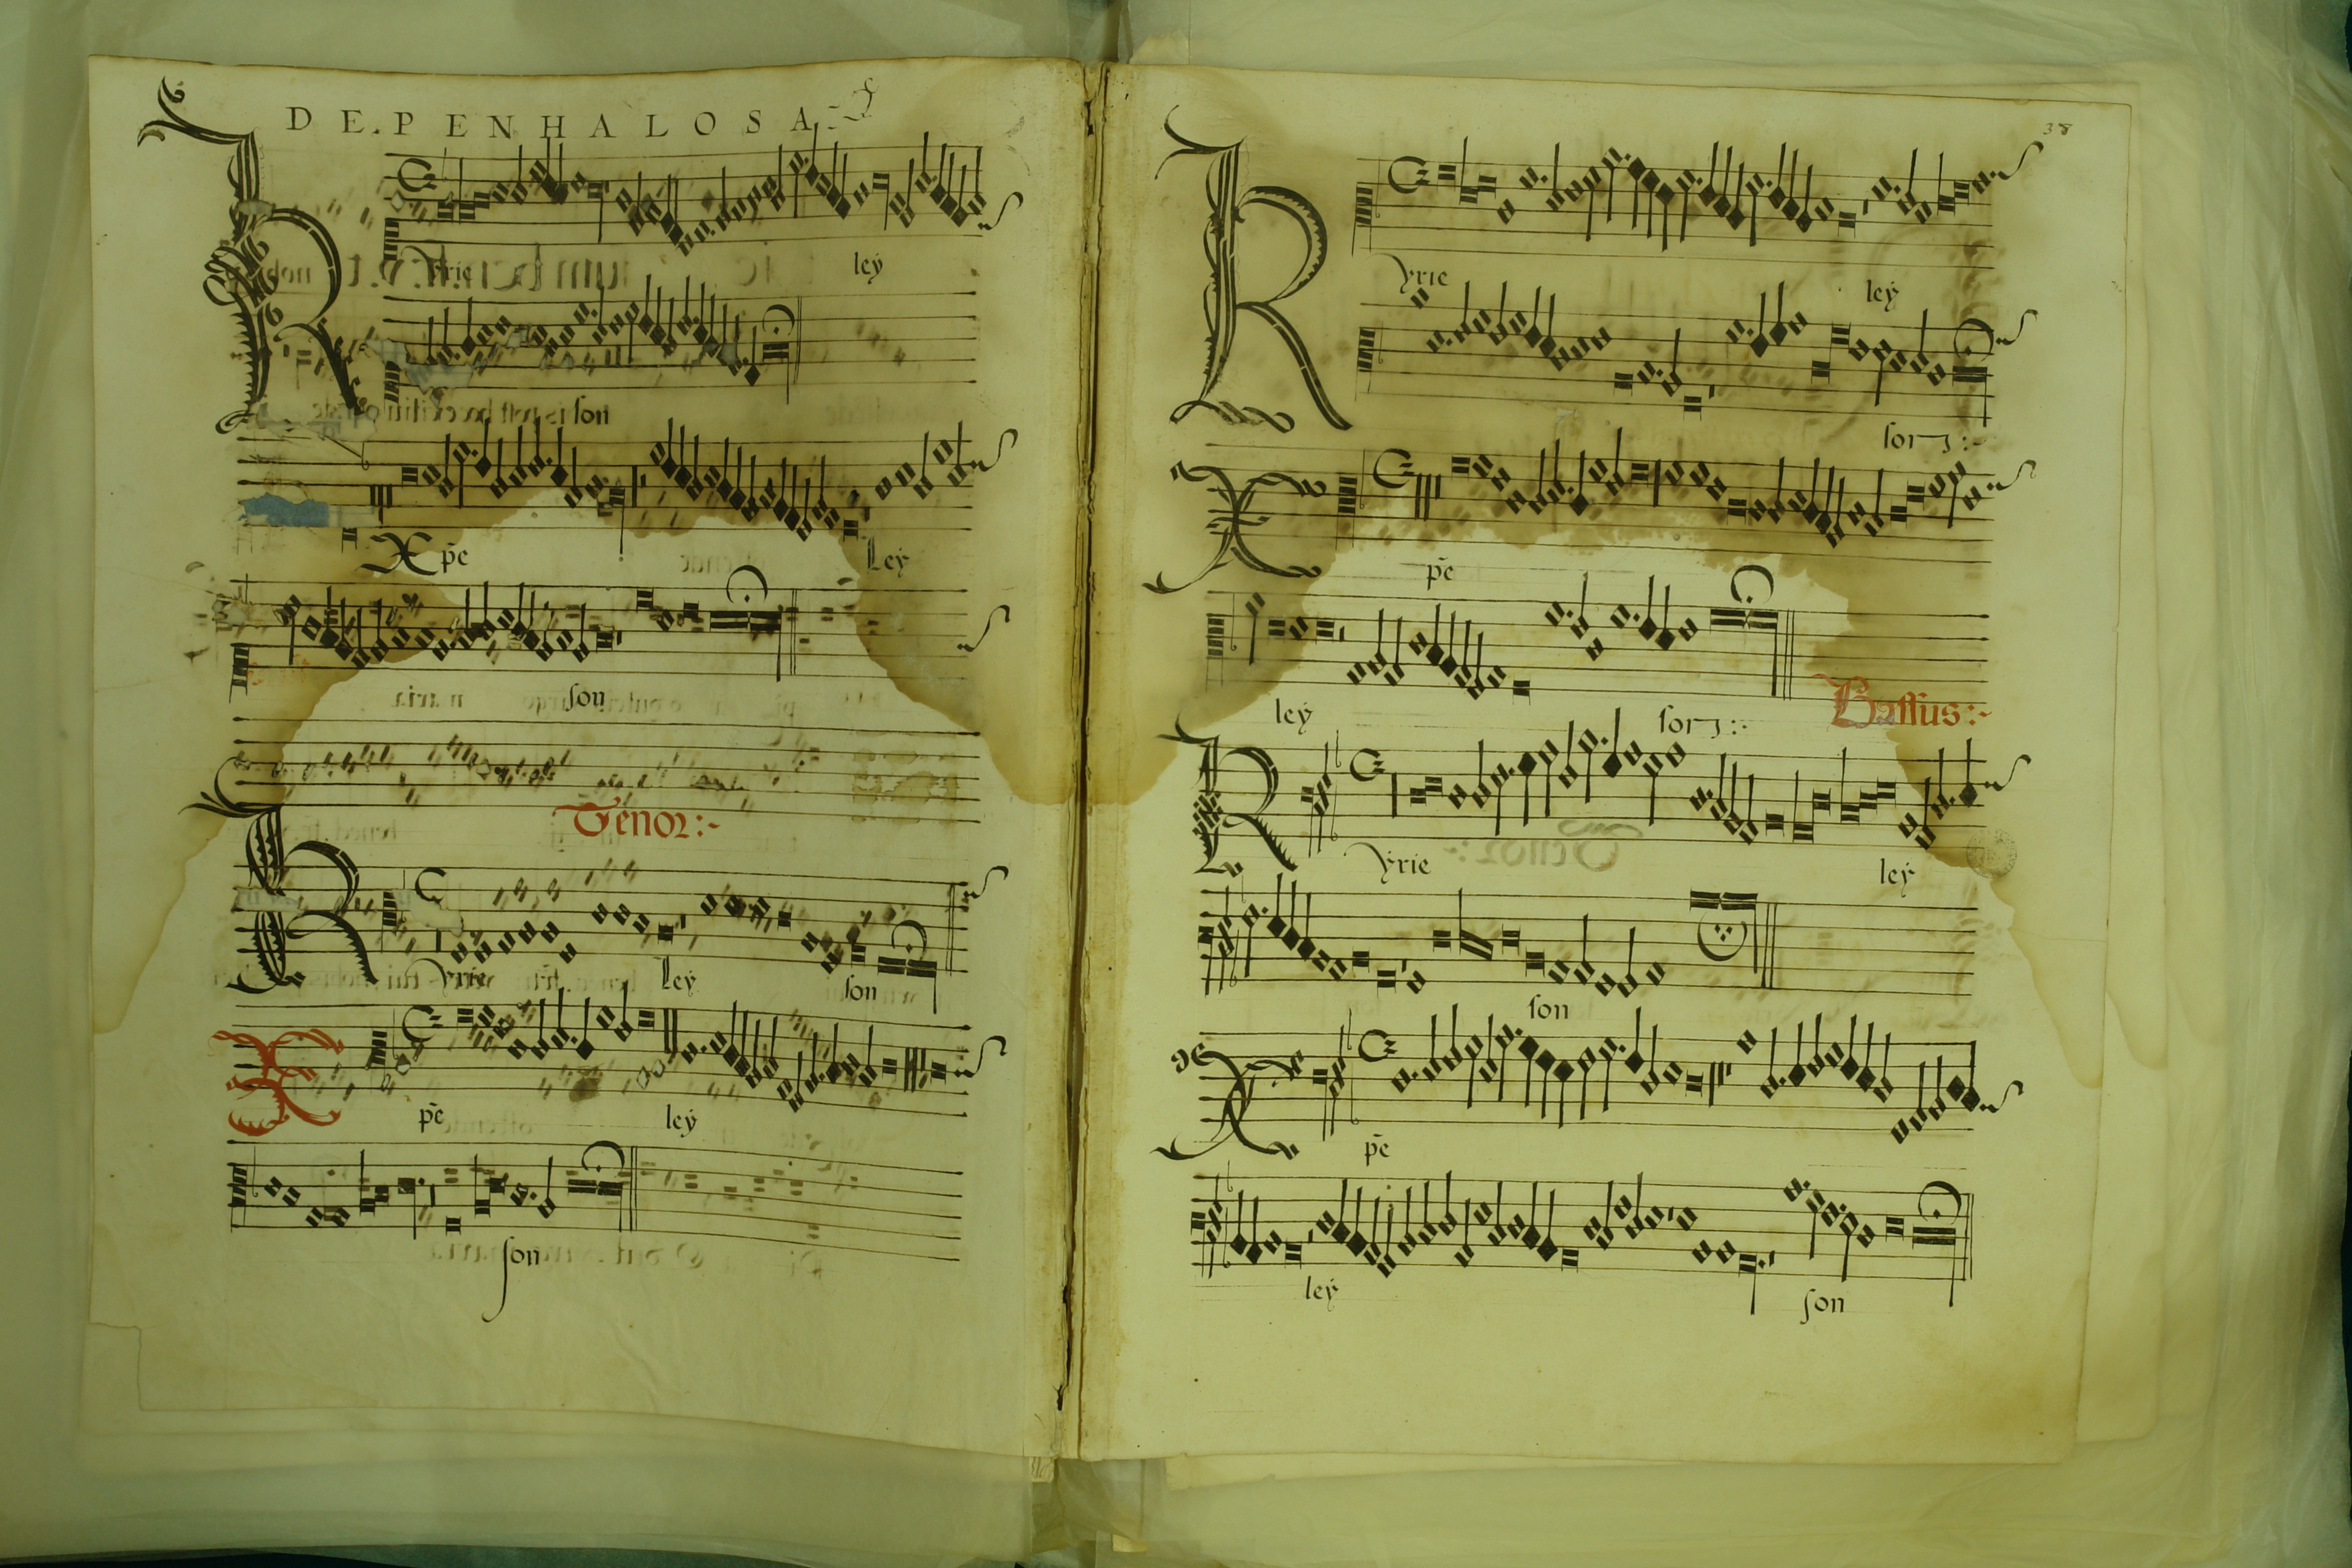 DE.PENHALOSA
Kyrie ley
son
Xp̄e Ley
son
Tenor:~
Kyrie Ley son
Xp̄e ley
son
38
Kyrie ley
son :~
Xp̄e
ley son :~
Bassus:~
Kyrie ley
son
Xp̄e
ley son